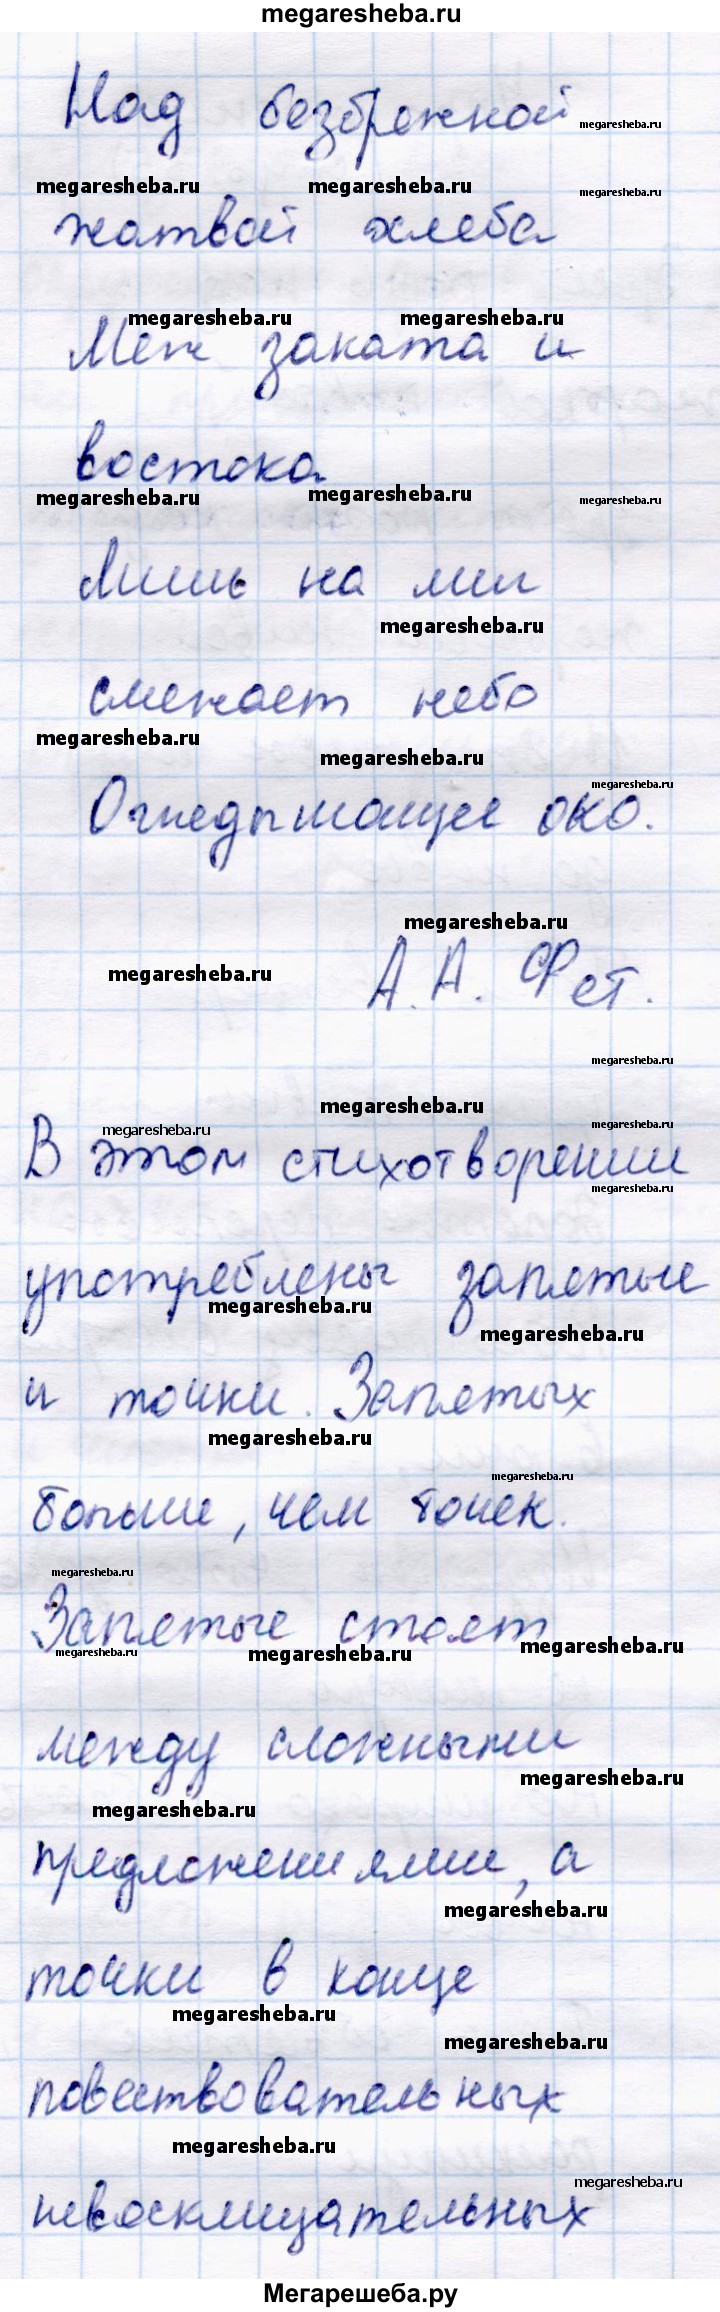 megaresheba.ru
Над безбрежной
megaresheba.ru
megaresheba.ru megaresheba.ru megaresheba.ru
жатвой хлеба
megaresheba.ru megaresheba.ru
Меж заката и
востока
megaresheba.ru megaresheba.ru megaresheba.ru
Лишь на миг
megaresheba.ru
смежает небо
megaresheba.ru megaresheba.ru
megaresheba.ru
Огнедышащее око.
megaresheba.ru
megaresheba.ru
А. А. Фет.
megaresheba.ru
megaresheba.ru
megaresheba.ru megaresheba.ru
В этом стихотворении
megaresheba.ru
употреблены запятые
megaresheba.ru megaresheba.ru
и точки. Запятых
megaresheba.ru
megaresheba.ru
больше, чем точек.
megaresheba.ru
Запятые стоят
megaresheba.ru megaresheba.ru megaresheba.ru
между сложными
megaresheba.ru
megaresheba.ru
предложениями, а
megaresheba.ru
точки в конце
megaresheba.ru megaresheba.ru
повествовательных
megaresheba.ru
megaresheba.ru
невосклицательных
Мегарешеба.ру